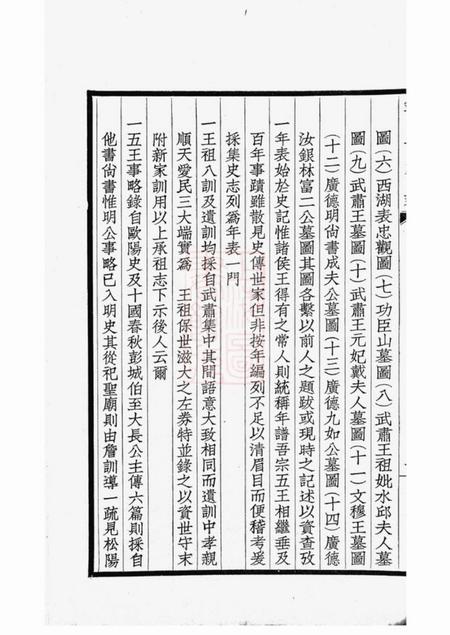 圖(六)西湖表忠觀圖(七)功臣山墓圖(八)武肅王祖妣水邱夫人墓
圖(九)武肅王墓圖(十)武肅王元妃戴夫人墓圖(十一)文穆王墓圖
(十二)廣德明尙書成夫公墓圖(十三)廣德九如公墓圖(十四)廣德
汝銀林富二公墓圖其圖各繫以前人之題跋或現時之記述以資查攷
一年表始於史記惟諸侯王得有之常人則統稱年譜吾宗五王相繼垂及
百年事蹟雖散見史傳世家但非按年編列不足以清眉目而便稽考爰
採集史志列爲年表一門
一王祖八訓及遺訓均採自武肅集中其間語意大致相同而遺訓中孝親
順天愛民三大端實爲 王祖保世滋大之左券特並錄之以資世守末
附新家訓用以上承祖志下示後人云爾
一五王事略錄自歐陽史及十國春秋彭城伯至大長公主傳六篇則採自
他書尙書惟明公事略已入明史其從祀聖廟則由詹訓導一疏見松陽